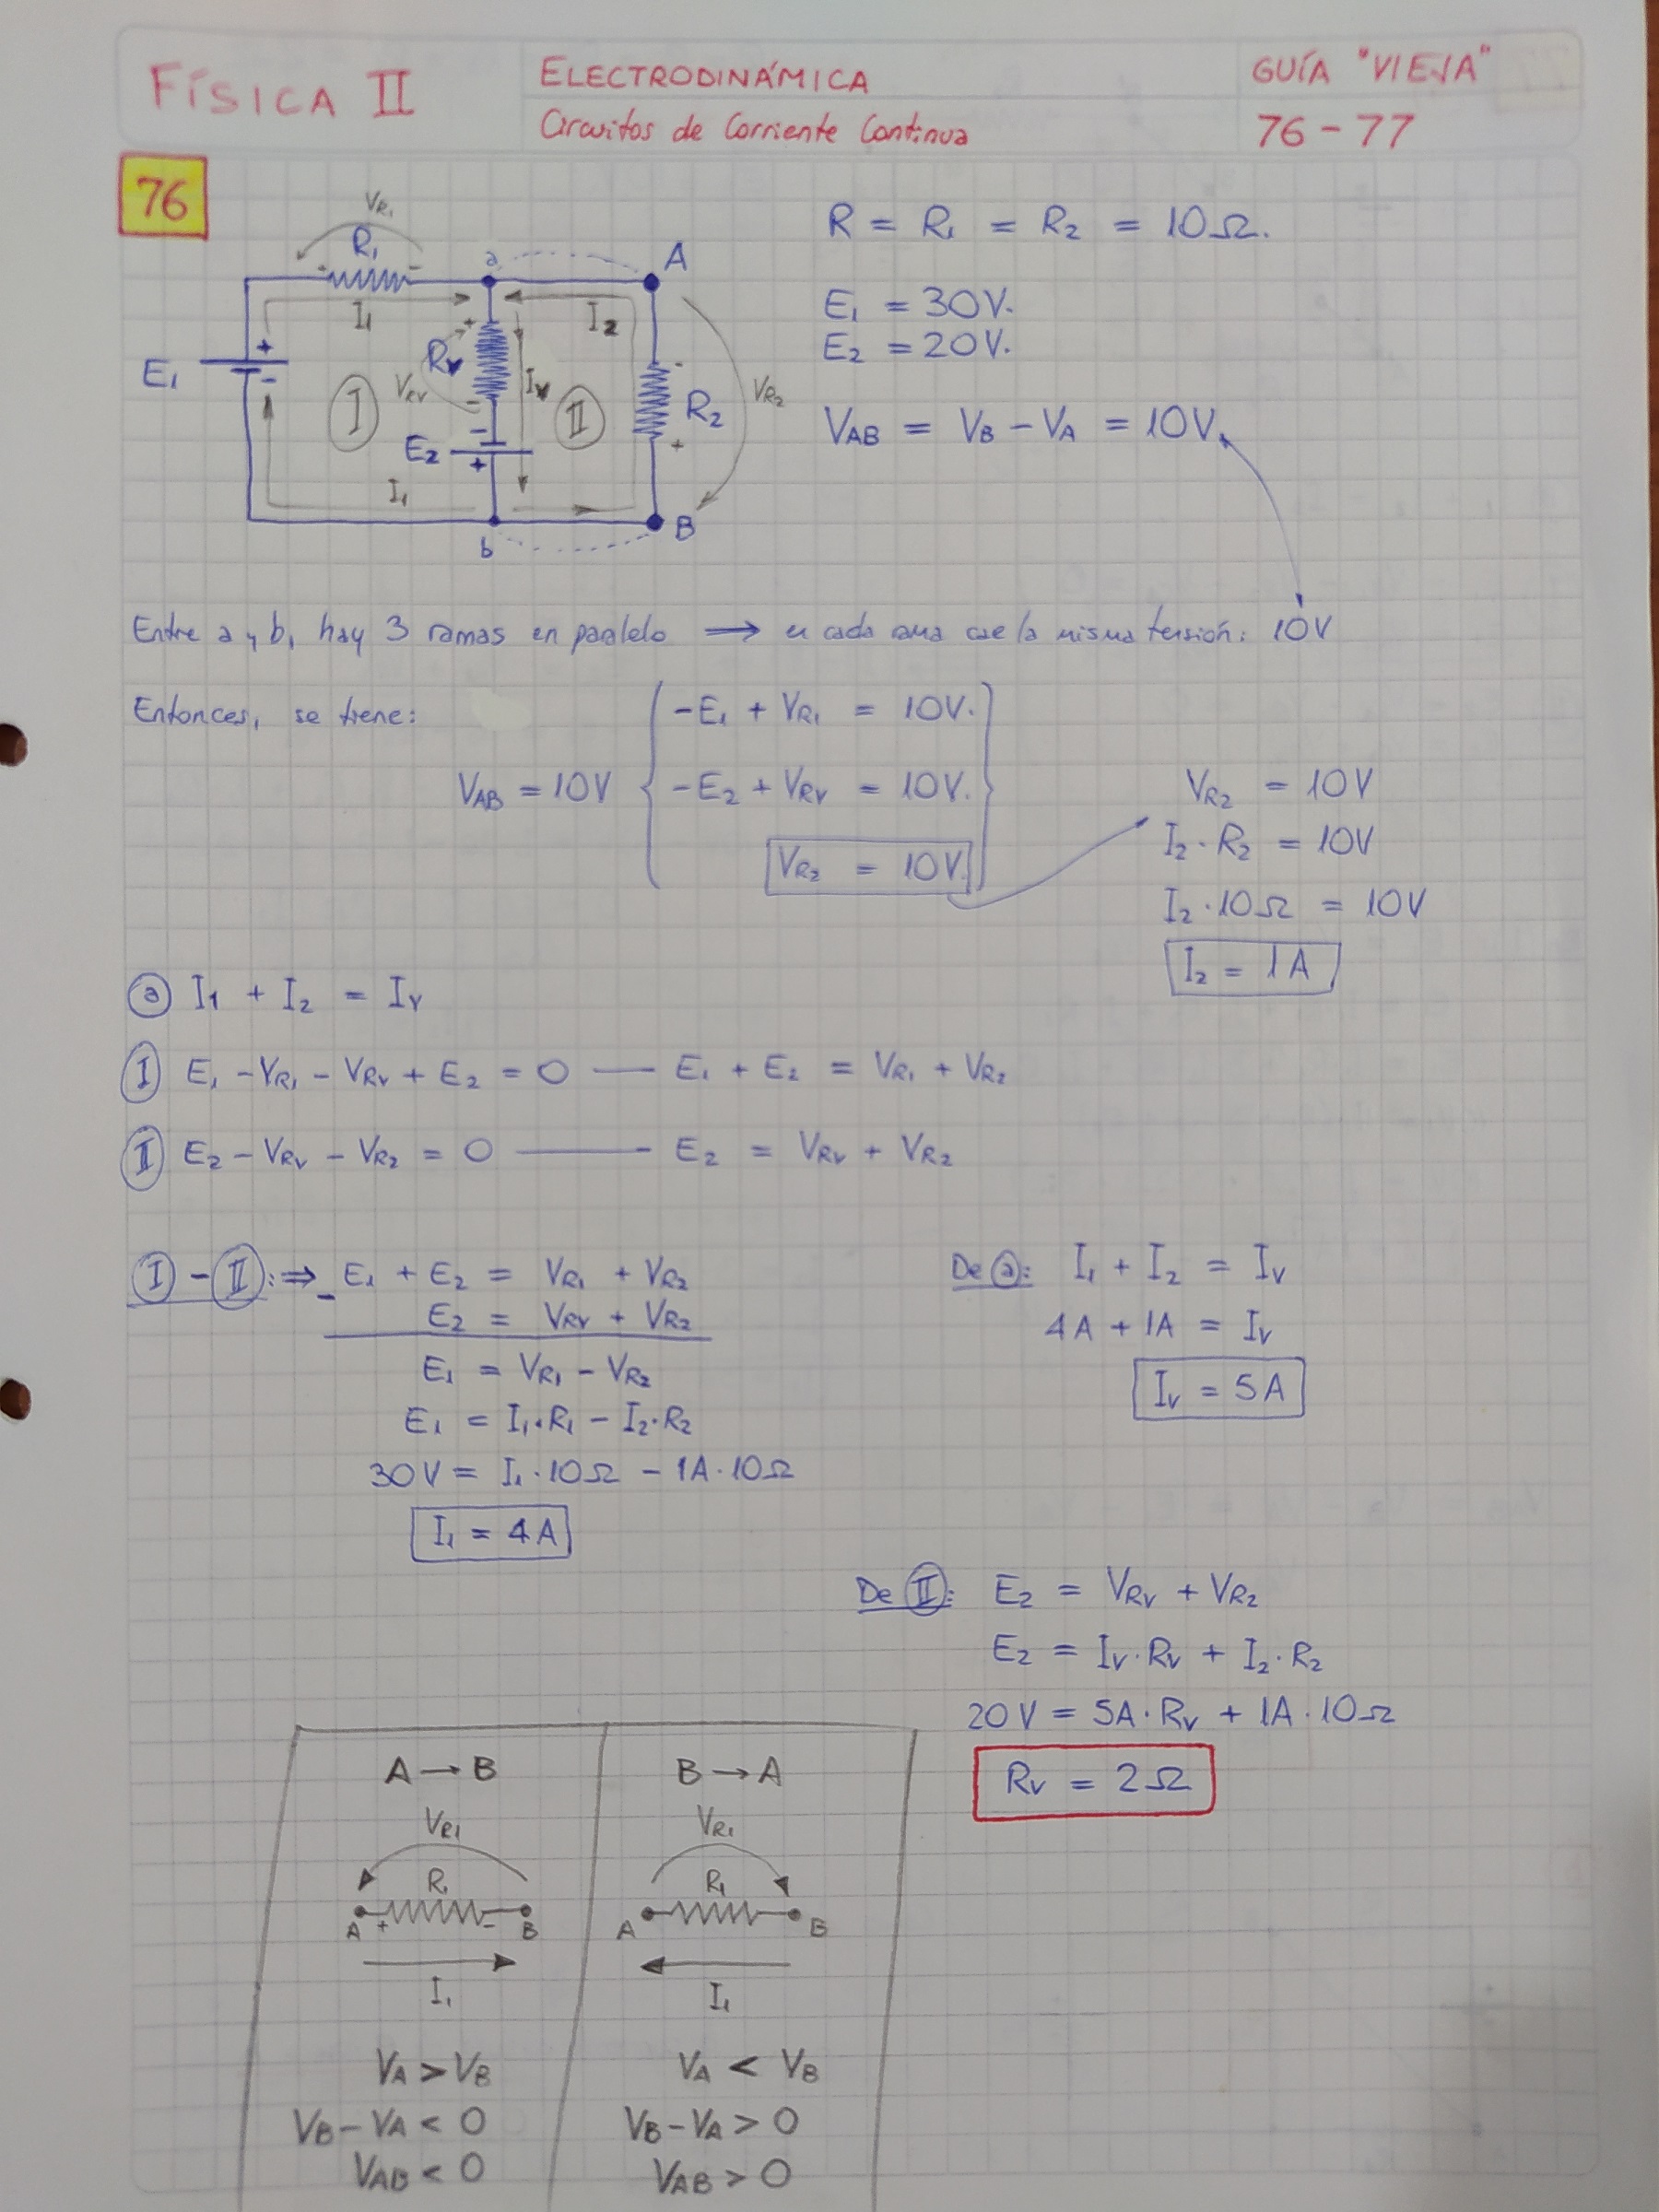 FÍSICA II
ELECTRODINÁMICA
Circuitos de Corriente Continua
GUÍA "VIEJA"
76 - 77
76
VR1
R1
a
A
I1
I2
+
-
E1
I
VRV
RV
IV
II
E2
R2
VR2
I1
b
B
R = R1 = R2 = 10Ω.
E1 = 30V.
E2 = 20V.
VAB = VB - VA = 10V.
Entre a y b, hay 3 ramas en paralelo → en cada rama cae la misma tensión: 10V
Entonces, se tiene:
-E1 + VR1 = 10V.
VAB = 10V { -E2 + VRV = 10V. }
VR2 = 10V.
VR2 = 10V
I2 · R2 = 10V
I2 · 10Ω = 10V
I2 = 1A
a I1 + I2 = IV
I E1 - VR1 - VRV + E2 = 0 — E1 + E2 = VR1 + VR2
II E2 - VRV - VR2 = 0 — E2 = VRV + VR2
I - II: ⇒ E1 + E2 = VR1 + VR2
- E2 = VRV + VR2
E1 = VR1 - VR2
E1 = I1 · R1 - I2 · R2
30V = I1 · 10Ω - 1A · 10Ω
I1 = 4A
De a: I1 + I2 = IV
4A + 1A = IV
IV = 5A
De II: E2 = VRV + VR2
E2 = IV · RV + I2 · R2
20V = 5A · RV + 1A · 10Ω
RV = 2Ω
A → B
VR1
R1
A + - B
I1
VA > VB
VB - VA < 0
VAB < 0
B → A
VR1
R1
A B
I1
VA < VB
VB - VA > 0
VAB > 0